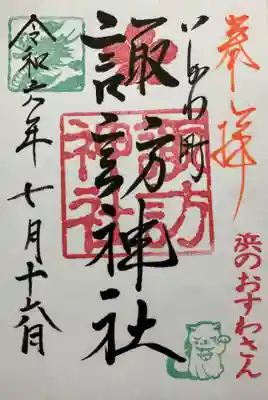 奉拝
浜のおすわさん
町
諏訪神社
諏訪
神社
令和六年 七月十六日